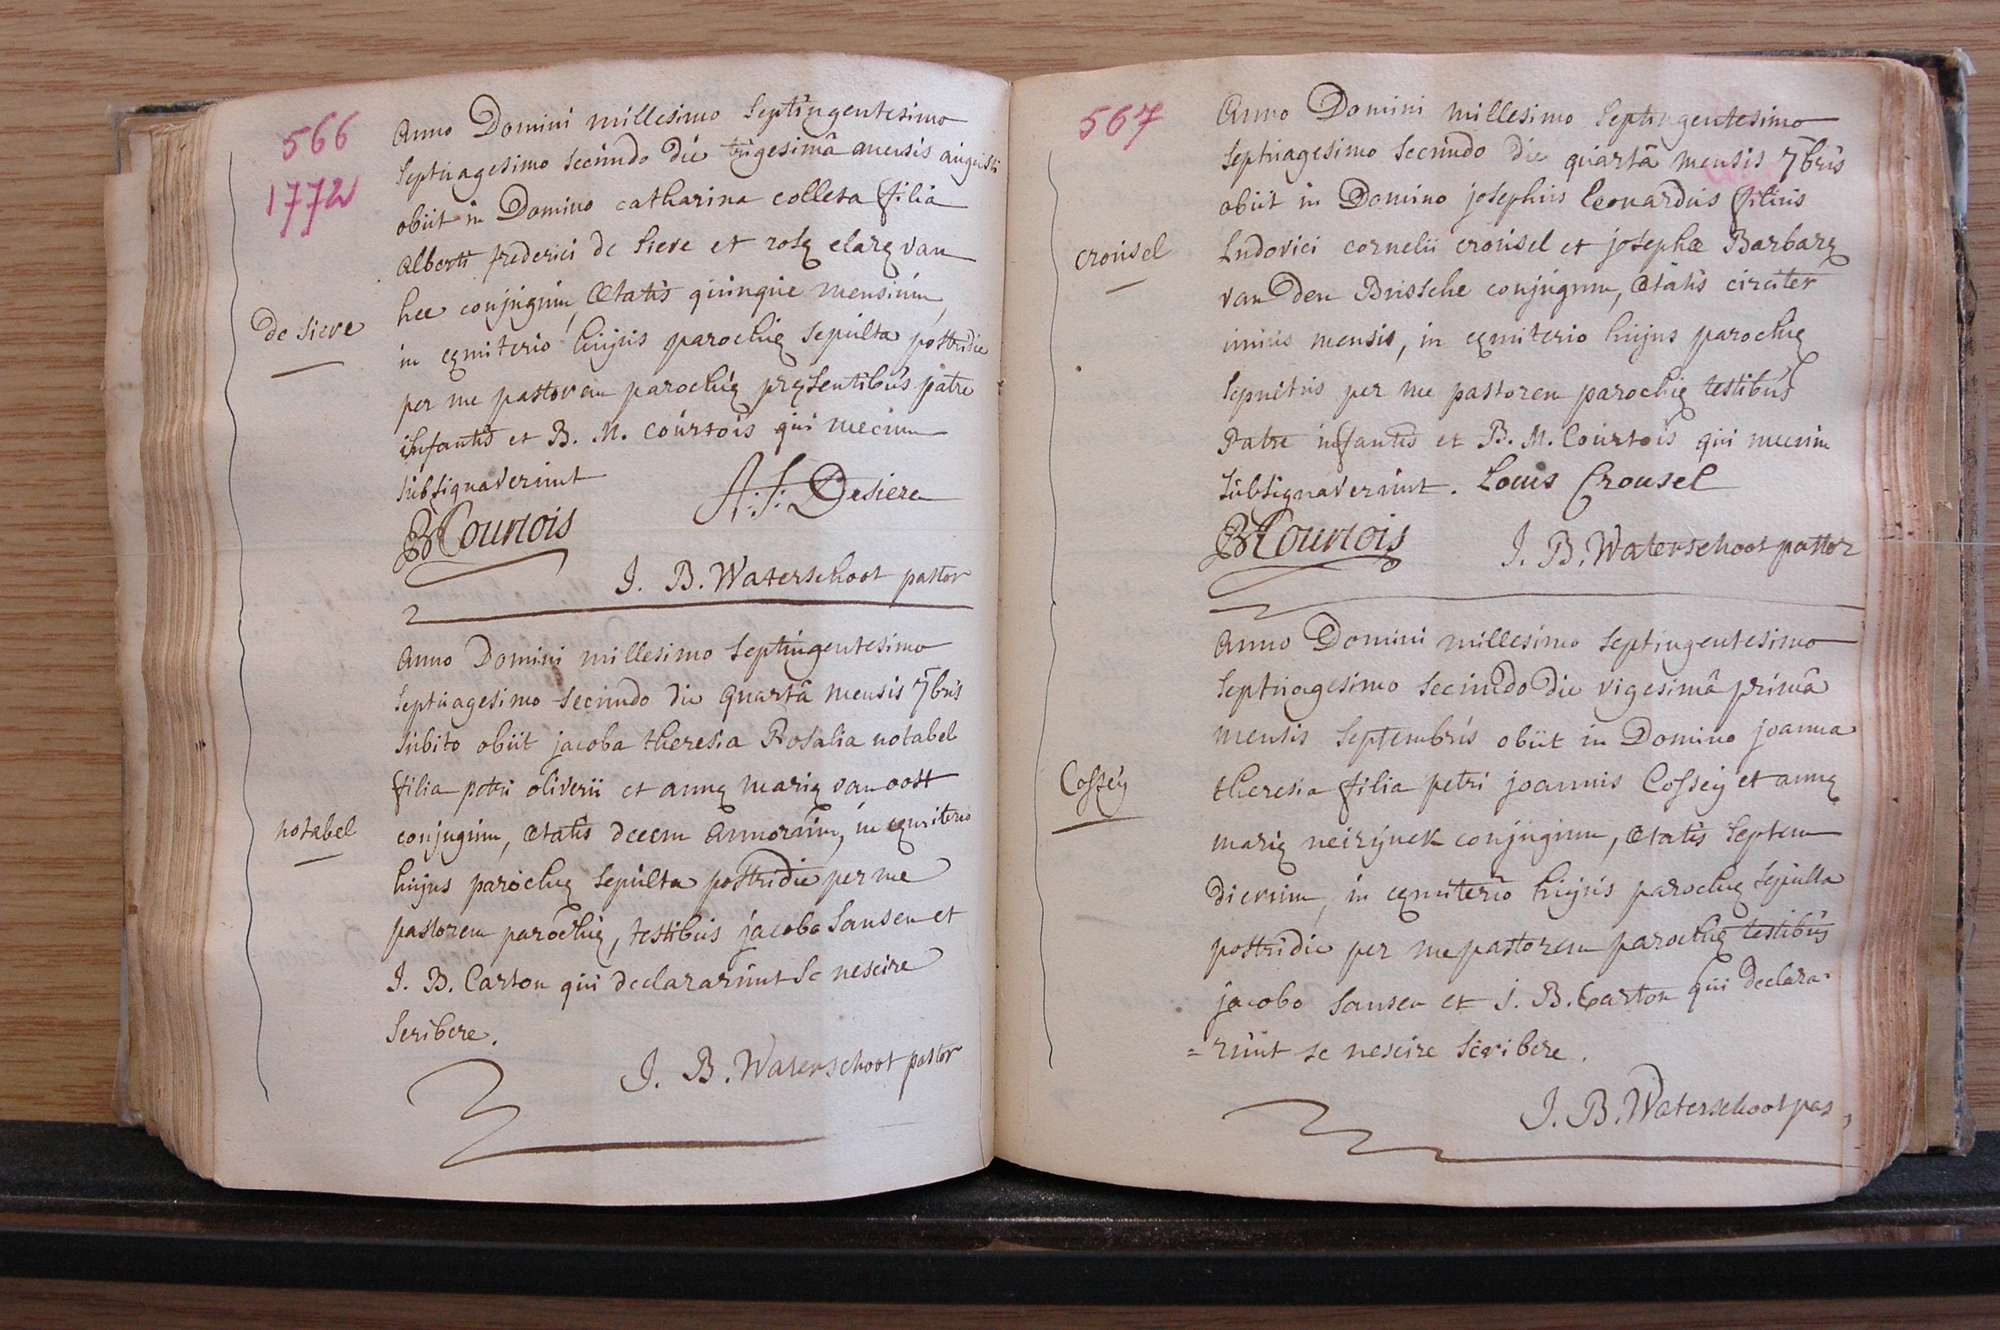 566
1772
Anno Domini millesimo Septingentesimo
Septuagesimo secundo die trigesimâ mensis augusti
obiit in Domino catharina colleta filia
Alberti frederici de Siere et rosę clarę van
hee conjugum, Ætatis quinque mensium,
de Siere
in cęmiterio hujus parochię sepulta postridie
per me pastorem parochię pręsentibus patre
infantis et B. M. Courtois qui mecum
subsignaverunt
A: f: Desiere
BM Courtois
J. B. Waterschoot pastor
Anno Domini millesimo Septingentesimo
Septuagesimo secundo die quartâ mensis 7bris
subito obiit jacoba theresia Rosalia notabel
filia petri oliverii et annę marię van oost
notabel
conjugum, Ætatis decem Annorum, in cęmiterio
hujus parochię sepulta postridie per me
pastorem parochię, testibus jacobo Sansen et
J. B. Carton qui declararunt se nescire
scribere.
J. B. Waterschoot pastor
567
Anno Domini millesimo Septingentesimo
Septuagesimo secundo die quartâ mensis 7bris
obiit in Domino josephus Leonardus filius
crousel
Ludovici cornelii crousel et josephæ Barbarę
van Den Bussche conjugum, Ætatis circiter
unius mensis, in cęmiterio hujus parochię
sepultus per me pastorem parochię testibus
Patre infantis et B. M. Courtois qui mecum
subsignaverunt. Louis Crousel
BM Courtois
J. B. Waterschoot pastor
Anno Domini millesimo Septingentesimo
Septuagesimo secundo die vigesimâ primâ
mensis Septembris obiit in Domino joanna
Cossey
theresia filia petri joannis Cossey et annę
marię neirynck conjugum, Ætatis septem
dierum, in cęmiterio hujus parochię sepulta
postridie per me pastorem parochię testibus
jacobo Sansen et J. B. Carton qui declara-
=runt se nescire scribere.
J. B. Waterschoot pas